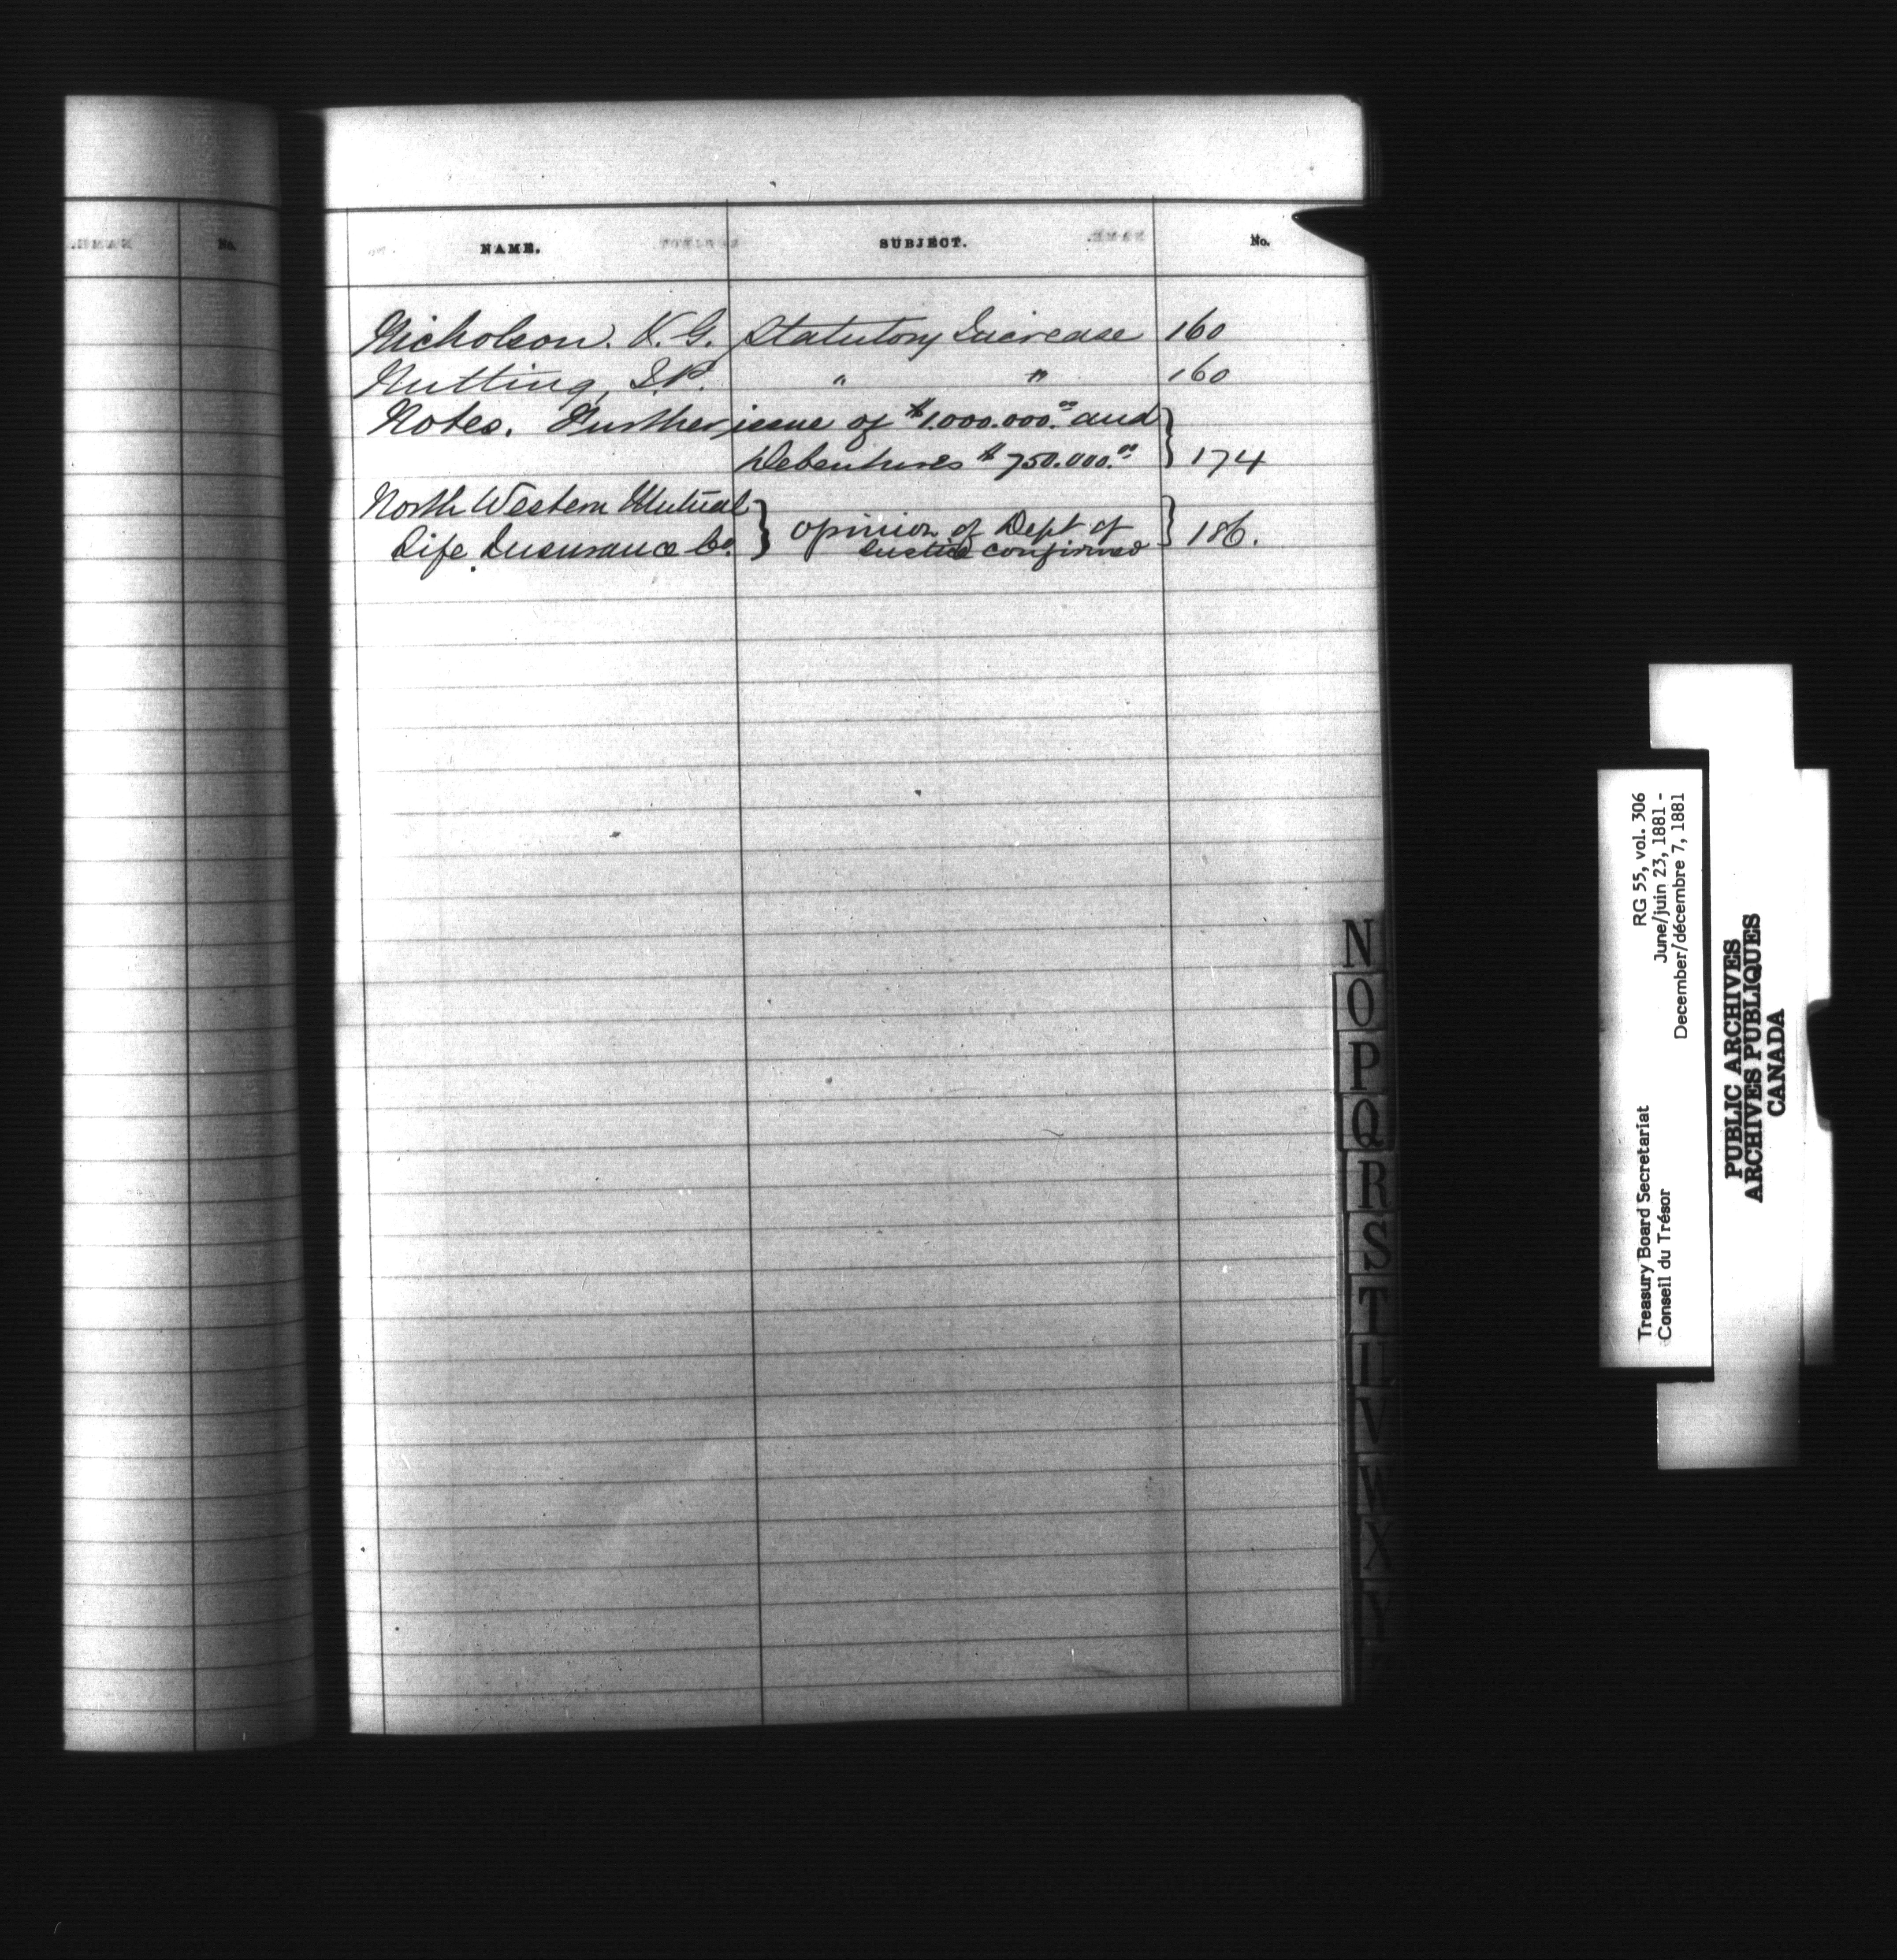 No.
NAME. SUBJECT. No.
Nicholson. K. G. Statutory Increase 160
Nutting, S.P. " " 160
Notes. Further issue of $1.000.000.00 and
Debentures $750.000.00 174
North Western Mutual
Life Insurance Co. opinion of Dept of
Justice confirmed 186.
N
O
P
Q
R
S
T
U
V
W
X
Y
RG 55, vol. 306
June/juin 23, 1881 -
December/décembre 7, 1881
Treasury Board Secretariat
Conseil du Trésor
PUBLIC ARCHIVES
ARCHIVES PUBLIQUES
CANADA